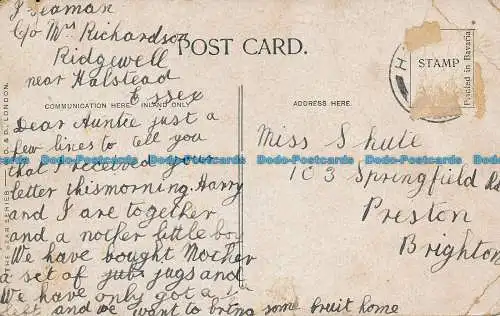 J Seaman
c/o Mrs Richardson
Ridgewell
near Halstead
Essex
POST CARD.
COMMUNICATION HERE, INLAND ONLY.
ADDRESS HERE.
STAMP
Printed in Bavaria
THE STAR SERIES
G. D. & D., LONDON.
Dear Auntie just a
few lines to tell you
that I received your
letter this morning. Harry
and I are together
and a nother little boy
We have bought Mother
a set of jugs and
We have only got a
left and we want to bring some fruit home
Miss Shute
103 Springfield Rd
Preston
Brighton
Dodo-Postcards Dodo-Postcards Dodo-Postcards